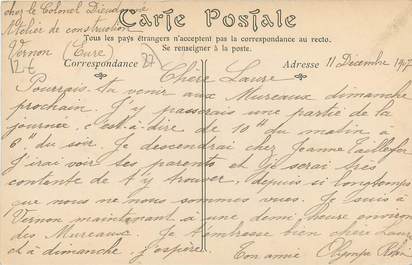 chez le Colonel Dieudonné
Atelier de construction
Vernon (Eure)
Carte Postale
Tous les pays étrangers n'acceptent pas la correspondance au recto.
Se renseigner à la poste.
Correspondance
Adresse 11 Décembre 1907
Chère Laure
Pourrais-tu venir aux Mureaux dimanche
prochain. J'y passerais une partie de la
journée, c'est-à-dire de 10h du matin à
6h du soir. Je descendrai chez Jeanne Taillefer
J'irai voir tes parents et il serai très
contente de t'y trouver, depuis si longtemps
que nous ne nous sommes vues. Je suis à
Vernon maintenant à une demi-heure environ
des Mureaux. Je t'embrasse bien chère Laure
et à dimanche, j'espère. Ton amie Olympe